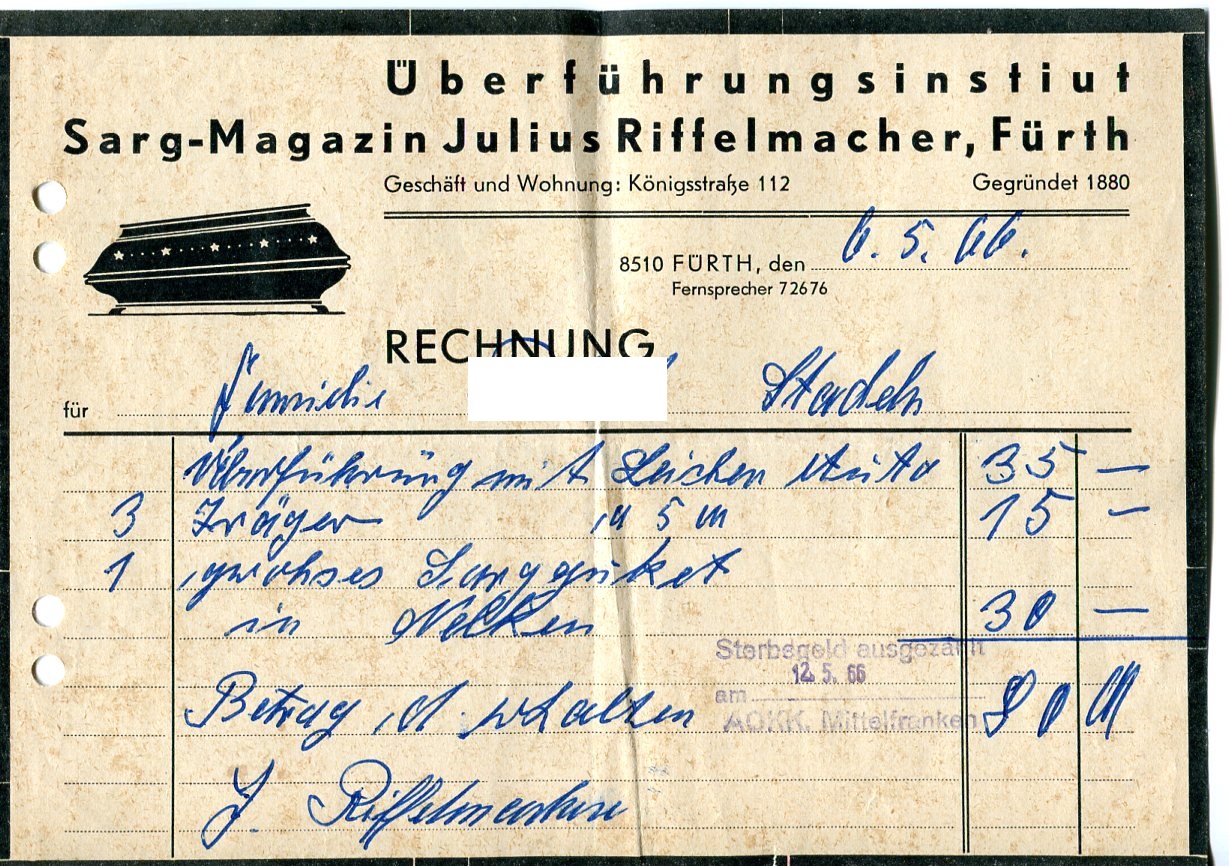 Überführungsinstiut
Sarg-Magazin Julius Riffelmacher, Fürth
Geschäft und Wohnung: Königsstraße 112 Gegründet 1880
8510 FÜRTH, den 6. 5. 66.
Fernsprecher 72676
RECHNUNG
für Familie Stadeln
Überführung mit Leichen Auto 35 —
3 Träger a 5 M 15 —
1 großes Sargbuket
in Nelken 30 —
Sterbegeld ausgezahlt
am 12. 5. 66
AOKK. Mittelfranken
Betrag d. erhalten 80 M
J. Riffelmacher